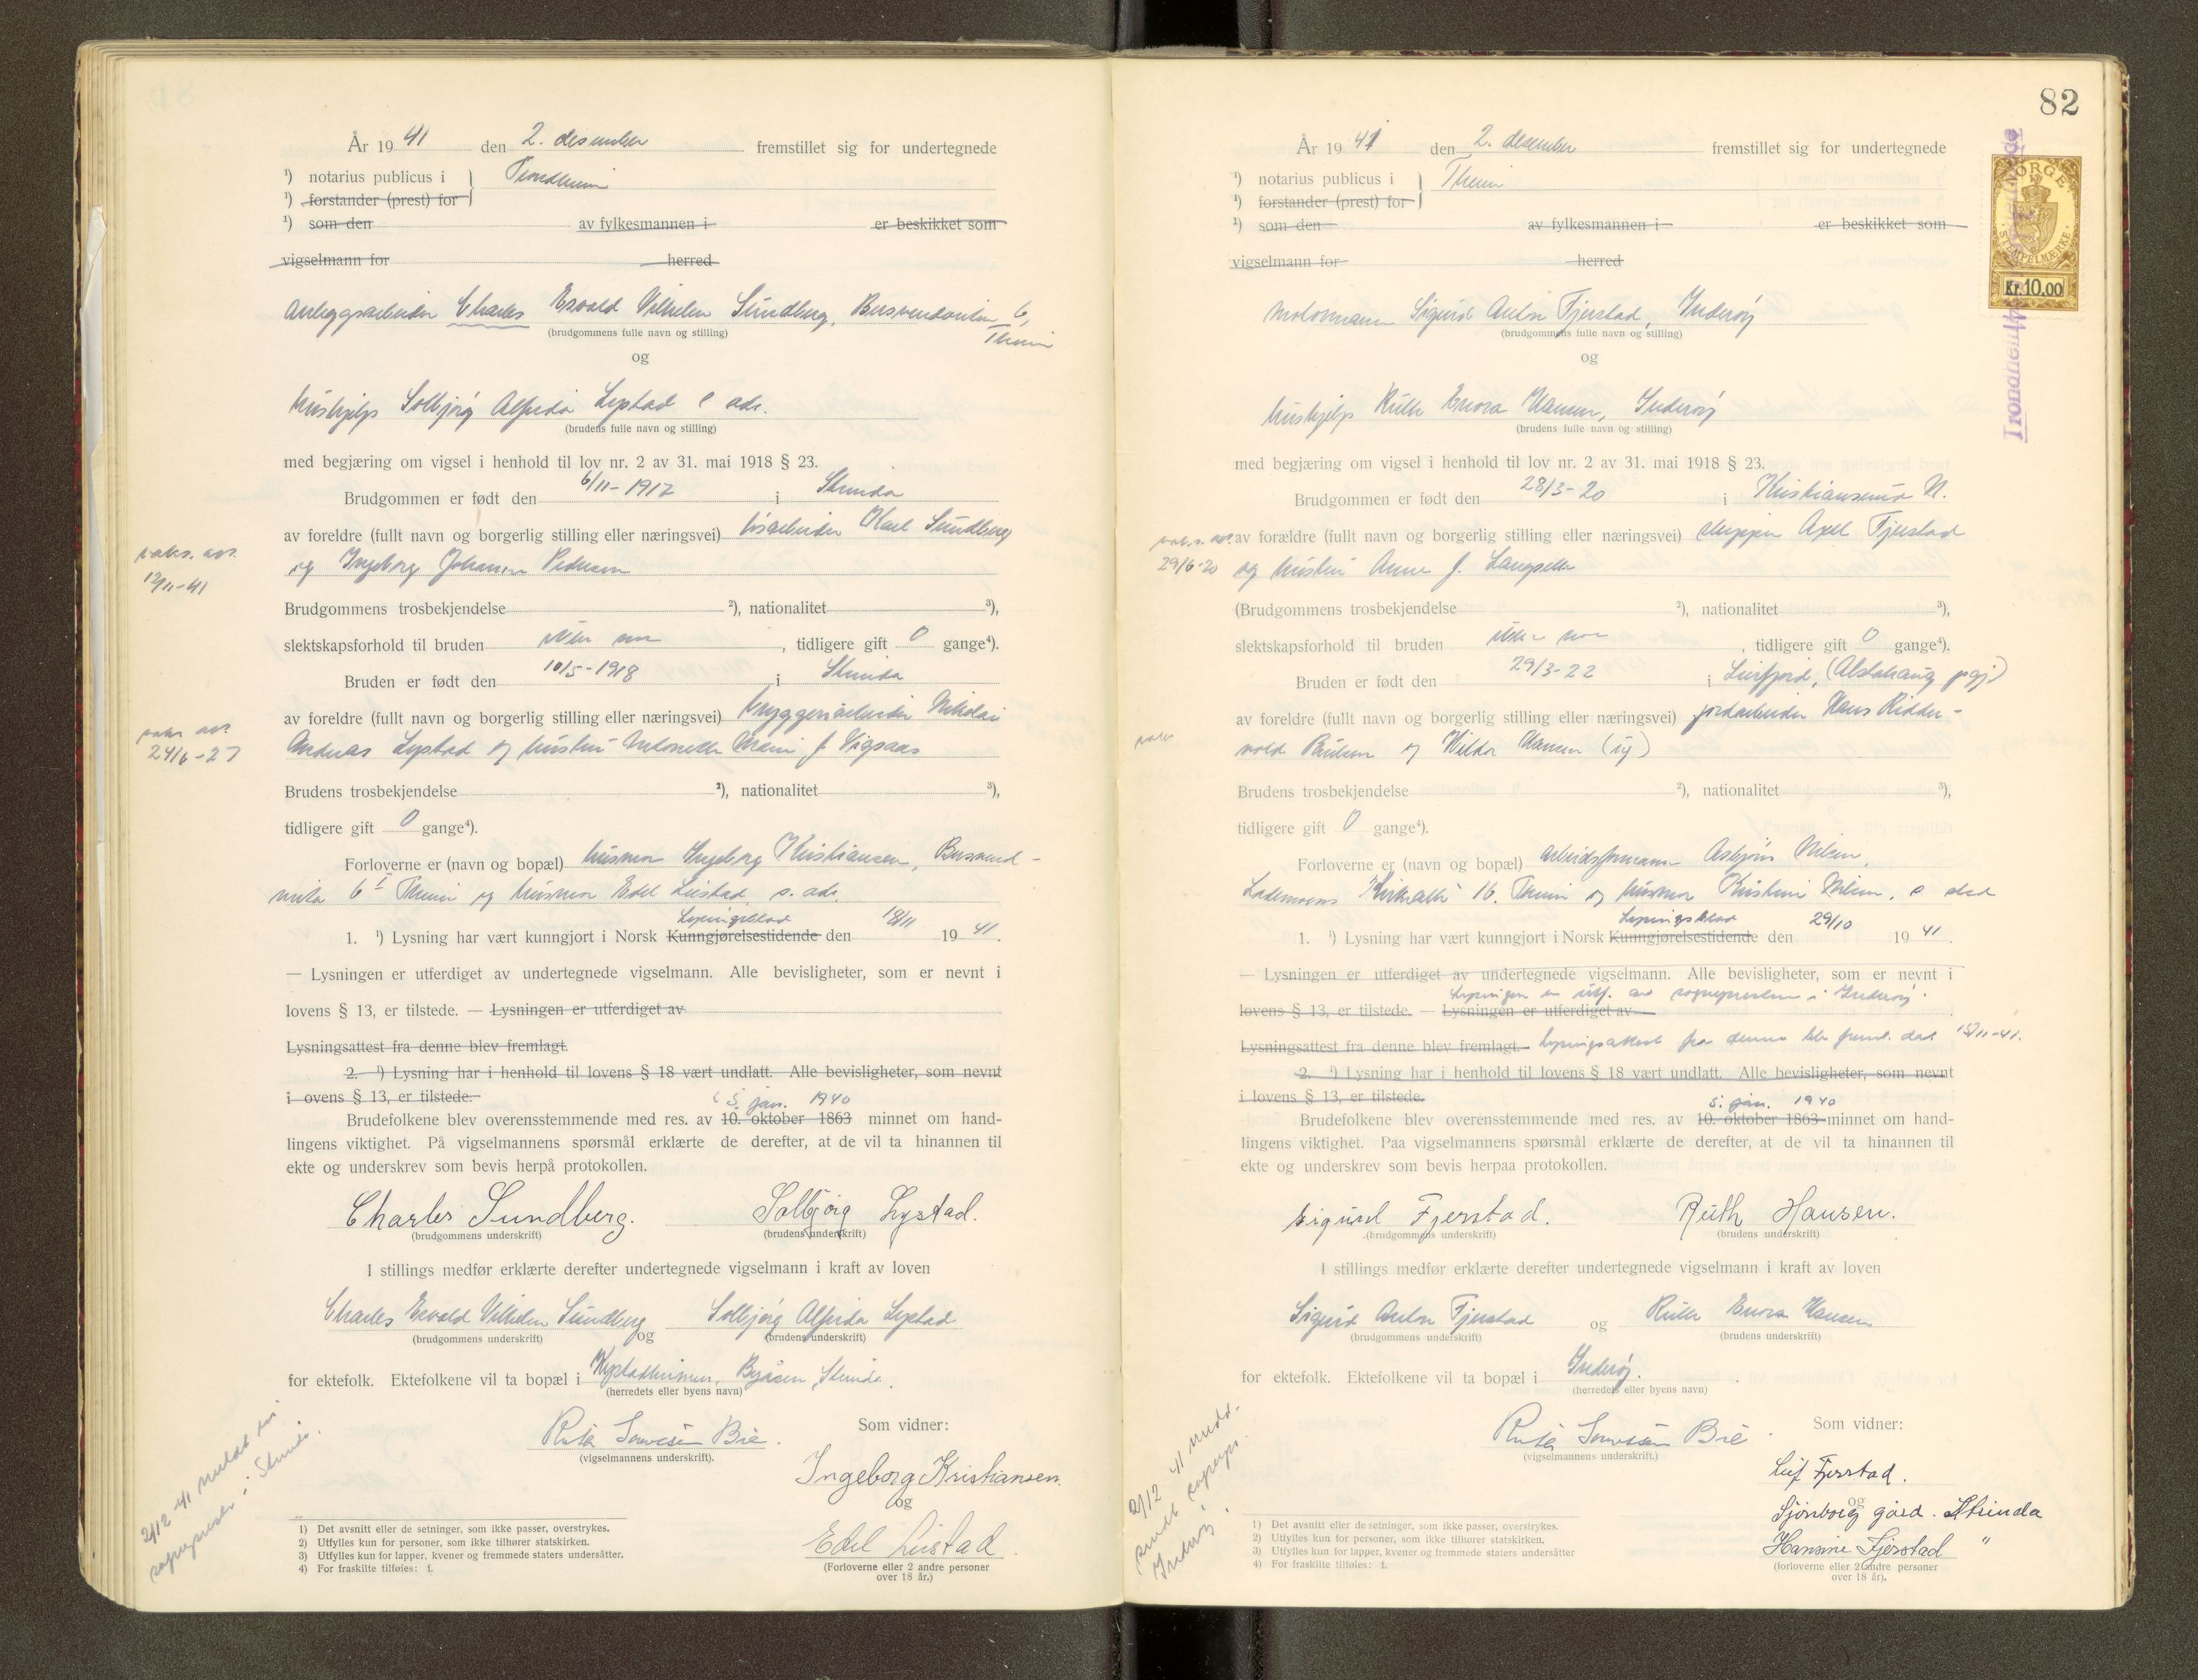 År 19 41 den 2. desember fremstillet sig for undertegnede
¹) notarius publicus i } Trondheim
¹) forstander (prest) for
¹) som den av fylkesmannen i er beskikket som
vigselmann for herred
Anleggsarbeider Charles Evald Vilhelm Sundberg,
(brudgommens fulle navn og stilling)
og
hushjelp Solbjørg Alfrida Lystad s adr.
(brudens fulle navn og stilling)
med begjæring om vigsel i henhold til lov nr. 2 av 31. mai 1918 § 23.
Brudgommen er født den 6/11-1917 i Strinda
av foreldre (fullt navn og borgerlig stilling eller næringsvei) løsarbeider Karl Sundberg
og Ingeborg Johanna Pedersen
vaks. att.
12/11-41
Brudgommens trosbekjendelse ²), nationalitet ³),
slektskapsforhold til bruden ikke noe, tidligere gift 0 gange⁴).
Bruden er født den 10/5-1918 i Strinda
av foreldre (fullt navn og borgerlig stilling eller næringsvei) bryggeriarbeider Nikolai
Andreas Lystad og hustru Antonette Marie f. Vigsaas
vaks. att.
24/6-27
Brudens trosbekjendelse ²), nationalitet ³),
tidligere gift 0 gange⁴).
Forloverne er (navn og bopæl) husmor Ingeborg Kristiansen,
6 Theim og husmor Edel Liestad, s. adr.
Lysingsblad 18/11
1. ¹) Lysning har vært kunngjort i Norsk Kunngjørelsestidende den 19 41.
— Lysningen er utferdiget av undertegnede vigselmann. Alle bevisligheter, som er nevnt i
lovens § 13, er tilstede. — Lysningen er utferdiget av
Lysningsattest fra denne blev fremlagt.
2. ¹) Lysning har i henhold til lovens § 18 vært undlatt. Alle bevisligheter, som nevnt
i ovens § 13, er tilstede.
5. jan. 1940
Brudefolkene blev overensstemmende med res. av 10. oktober 1863 minnet om hand-
lingens viktighet. På vigselmannens spørsmål erklærte de derefter, at de vil ta hinannen til
ekte og underskrev som bevis herpå protokollen.
Charles Sundberg. Solbjørg Lystad.
(brudgommens underskrift) (brudens underskrift)
I stillings medfør erklærte derefter undertegnede vigselmann i kraft av loven
Charles Evald Vilhelm Sundberg og Solbjørg Alfrida Lystad
(brudgommens underskrift) (brudens underskrift)
for ektefolk. Ektefolkene vil ta bopæl i Kystadheimen, Byåsen, Strinda.
(herredets eller byens navn)
Som vidner:
(vigselmannens underskrift).
Ingeborg Kristiansen.
og
Edel Liestad.
(Forloverne eller 2 andre personer
over 18 år.)
2/12-41 meldt til
sogneprest i Strinda.
1) Det avsnitt eller de setninger, som ikke passer, overstrykes.
2) Utfylles kun for personer, som ikke tilhører statskirken.
3) Utfylles kun for lapper, kvener og fremmede staters undersåtter.
4) For fraskilte tilføies: f.
82
NORGE
STEMPELMERKE
Kr. 10,00
År 19 41 den 2. desember fremstillet sig for undertegnede
¹) notarius publicus i } Theim
¹) forstander (prest) for
¹) som den av fylkesmannen i er beskikket som
vigselmann for herred
motormann Sigurd Anton Fjerstad, Inderøy
(brudgommens fulle navn og stilling)
og
hushjelp Ruth Enora Hansen, Inderøy
(brudens fulle navn og stilling)
med begjæring om vigsel i henhold til lov nr. 2 av 31. mai 1918 § 23.
Brudgommen er født den 28/3-20 i Kristiansund N.
av forældre (fullt navn og borgerlig stilling eller næringsvei) skipper Axel Fjerstad
og hustru Anna f. Langsette
vaks. att.
29/6-20
(Brudgommens trosbekjendelse ²), nationalitet ³),
slektskapsforhold til bruden ikke noe, tidligere gift 0 gange⁴).
Bruden er født den 29/3-22 i Leirfjord, (Alstahaug pgj.)
av foreldre (fullt navn og borgerlig stilling eller næringsvei) jordarbeider Hans Ridder-
vold Paulsen og Hilda Hansen (ug)
vaks
Brudens trosbekjendelse ²), nationalitet ³),
tidligere gift 0 gange⁴).
Forloverne er (navn og bopæl) arbeidsformann Asbjørn Nilsen,
Lademoens Kirkealle 16, Theim og husmor Kristine Nilsen, s sted
Lysingsblad 29/10
1. ¹) Lysning har vært kunngjort i Norsk Kunngjørelsestidende den 19 41.
— Lysningen er utferdiget av undertegnede vigselmann. Alle bevisligheter, som er nevnt i
Lysingen er utf. av sognepresten i Inderøy.
lovens § 13, er tilstede. — Lysningen er utferdiget av
Lysningsattest fra denne blev fremlagt. Lysingsattest fra denne ble freml. dat. 15/11-41.
2. ¹) Lysning har i henhold til lovens § 18 vært undlatt. Alle bevisligheter, som nevnt
i lovens § 13, er tilstede.
5. jan. 1940
Brudefolkene blev overensstemmende med res. av 10. oktober 1863 minnet om hand-
lingens viktighet. Paa vigselmannens spørsmål erklærte de derefter, at de vil ta hinannen til
ekte og underskrev som bevis herpaa protokollen.
Sigurd Fjerstad. Ruth Hansen.
(brudgommens underskrift) (brudens underskrift)
I stillings medfør erklærte derefter undertegnede vigselmann i kraft av loven
Sigurd Anton Fjerstad og Ruth Enora Hansen
(brudgommens underskrift) (brudens underskrift)
for ektefolk. Ektefolkene vil ta bopæl i Inderøy.
(herredets eller byens navn)
Som vidner:
(vigselmannens underskrift.)
Leif Fjerstad.
og
Sjønborg gård. Strinda
Hansine Fjerstad "
(forloverne eller 2 andre personer
over 18 år).
2/12-41 medd.
sendt sognepr.
Inderøy.
1) Det avsnitt eller de setninger, som ikke passer, overstrykes.
2) Utfylles kun for personer, som ikke tilhører statskirken.
3) Utfylles kun for lapper, kvener og fremmede staters undersåtter
4) For fraskilte tilføies: f.